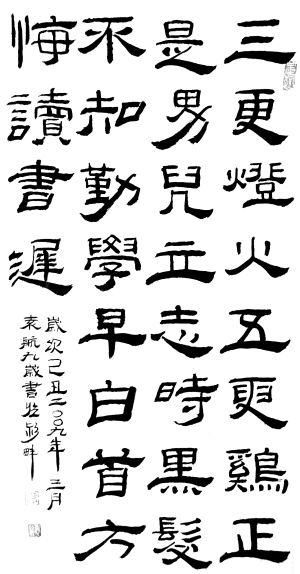 三更燈火五更鷄正
是男兒立志時黑髮
不知勤學早白首方
悔讀書遲
歲次己丑二〇〇九年三月
袁航九歲書於